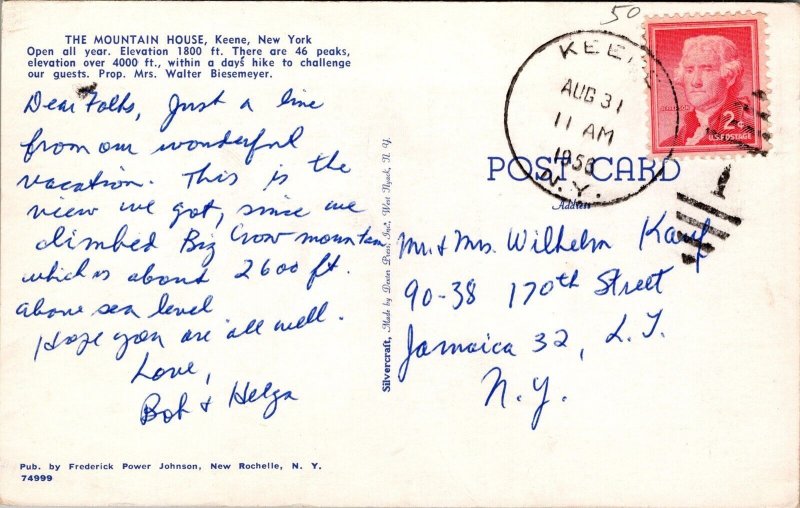 50
THE MOUNTAIN HOUSE, Keene, New York
Open all year. Elevation 1800 ft. There are 46 peaks,
elevation over 4000 ft., within a days hike to challenge
our guests. Prop. Mrs. Walter Biesemeyer.
Dear Folks, Just a line
from our wonderful
vacation. This is the
view we got, since we
climbed Big Crow mountain
which is about 2600 ft.
above sea level
Hope you are all well.
Love,
Bob & Helga
Pub. by Frederick Power Johnson, New Rochelle, N. Y.
74999
Silvercraft, Made by Dexter Press, Inc., West Nyack, N. Y.
KEENE
AUG 31
11 AM
1956
N.Y.
JEFFERSON
2¢
U.S. POSTAGE
POST CARD
Address
Mr. & Mrs. Wilhelm
90-38 170th Street
Jamaica 32, L.I.
N.Y.